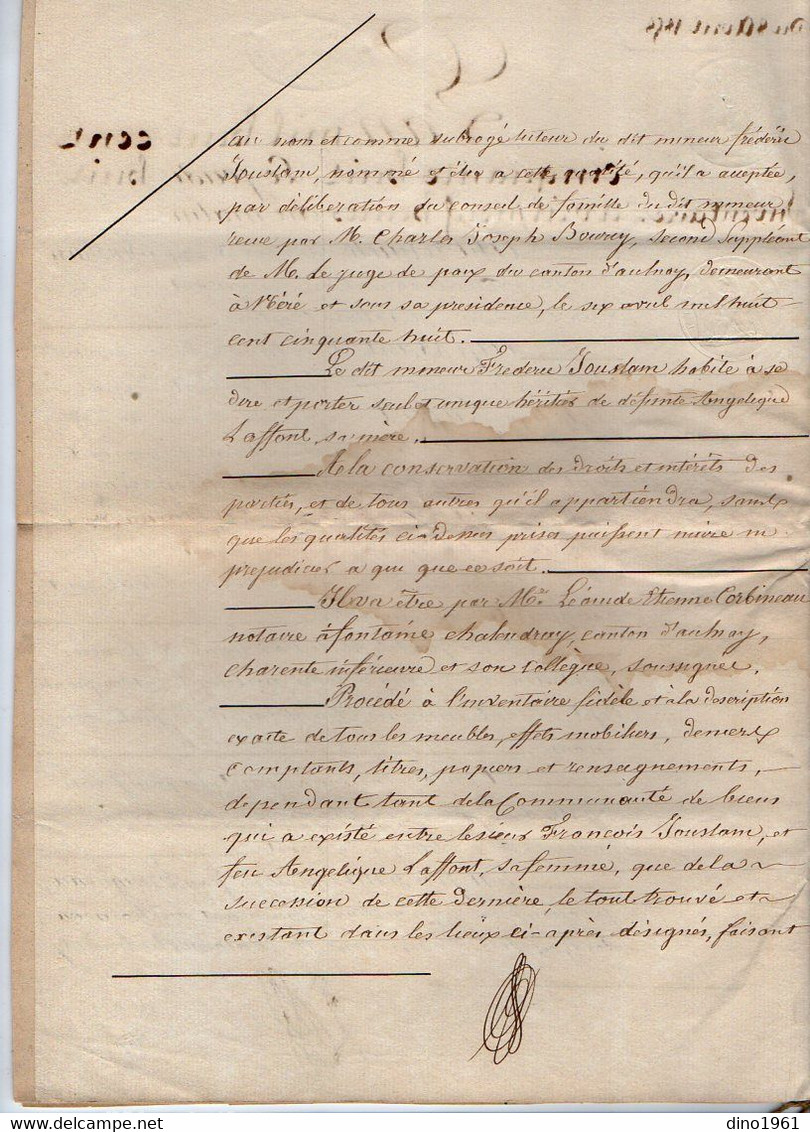 au nom et comme subrogé tuteur du dit mineur frédéric
Jouslain, nommé et élu a cette qualité, qu'il a acceptée,
par déliberation du conseil de famille du dit mineur
reçue par M. Charles Joseph Bouruy, second Suppléant
de M. Le juge de paix du canton d'aulnay, demeurant
à Néré et sous sa presidence, le six avril mil huit
cent cinquante huit.
Le dit mineur Frederic Jouslain habile à se
dire et porter seul et unique héritier de défunte Angelique
Laffont, sa mère.
A la conservation des droits et intérêts des
parties, et de tous autres qu'il appartiendra, sans
que les qualités ci-dessus prises puissent nuire ni
prejudicier a qui que ce soit.
Il va être par Me. Léandre Etienne Corbineau
notaire à fontaine Chalendray, canton d'aulnay,
charente inférieure et son Collègue, soussignés,
Procédé à l'inventaire fidèle et à la description
exacte de tous les meubles, effets mobiliers, deniers
Comptants, titres, papiers et renseignements,
dependant tant de la Communauté de biens
qui a existé entre le sieur François Jouslain, et
feu Angelique Laffont, sa femme, que de la
succession de cette dernière, le tout trouvé et
existant dans les lieux ci-après désignés, faisant
dino1961